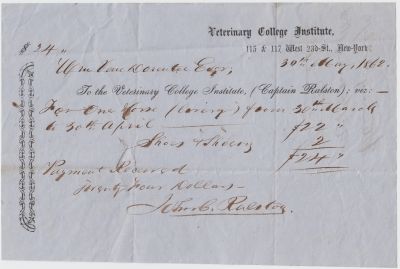 Veterinary College Institute,
115 & 117 West 23d-St., New-York.
$24 "
30th May, 1862.
Wm Van
To the Veterinary College Institute, (Captain Ralston); viz:—
For One Horse (livery) from 30th March
to 30th April — $22 "
Shoes & Shoeing 2
$24 "
Payment Received
Twenty Four Dollars —
John C. Ralston.